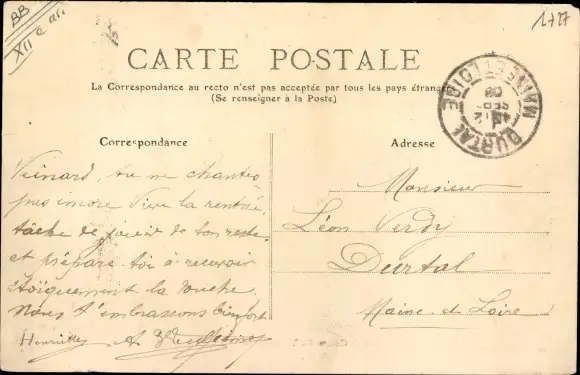 BB
XII e arr
1727
CARTE POSTALE
La Correspondance au recto n'est pas acceptée par tous les pays étrangers
(Se renseigner à la Poste)
DURTAL
MAINE ET LOIRE
Correspondance
Adresse
Veinard, tu ne chantes
pas encore Vive la rentrée,
tâche de jouir de ton reste
et prépare toi à recevoir
stoïquement la douche.
Nous t'embrassons bien fort
Henriette
Monsieur
Léon Verdy
Durtal
Maine et Loire